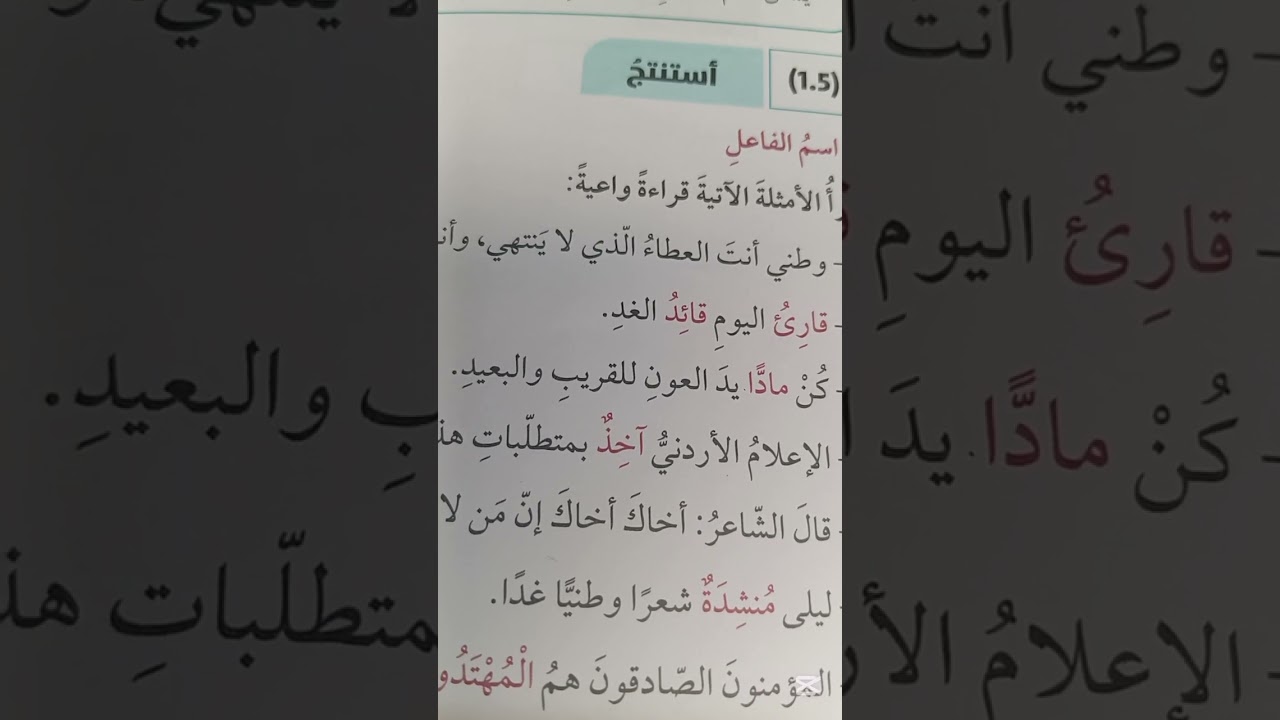 (1.5) أستنتجُ
اسمُ الفاعلِ
الأمثلةَ الآتيةَ قراءةً واعيةً:
- وطني أنتَ العطاءُ الّذي لا يَنتهي،
- قارِئُ اليومِ قائِدُ الغدِ.
- كُنْ مادًّا يدَ العونِ للقريبِ والبعيدِ.
- الإعلامُ الأردنيُّ آخِذٌ بمتطلّباتِ
- قالَ الشّاعرُ: أخاكَ أخاكَ إنّ مَن لا
- ليلى مُنشِدَةٌ شعرًا وطنيًّا غدًا.
- المؤمنونَ الصّادقونَ همُ الْمُهْتَدُو